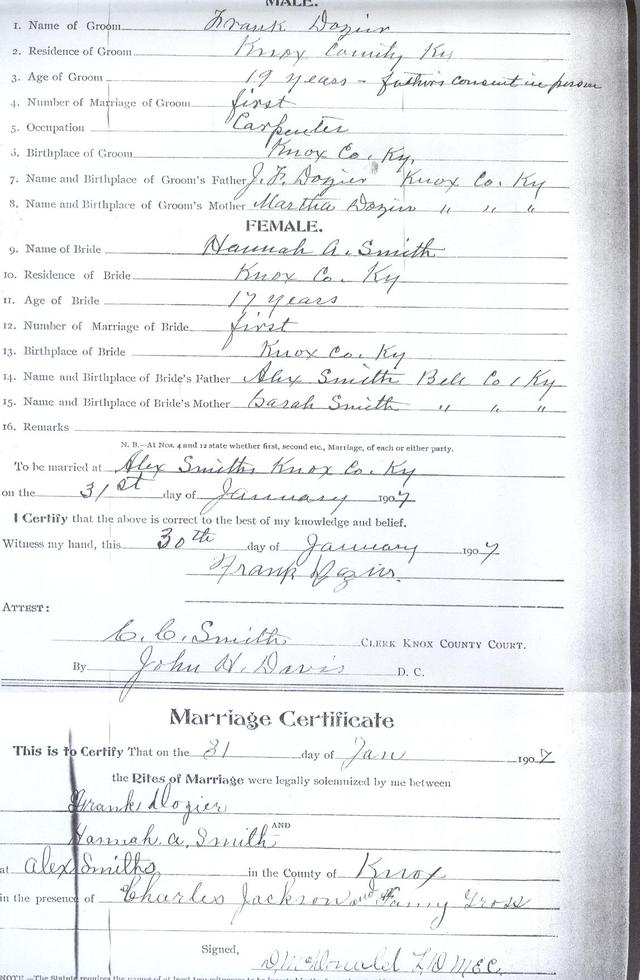 MALE.
1. Name of Groom Frank Dozier
2. Residence of Groom Knox County Ky
3. Age of Groom 19 years - father's consent in person
4. Number of Marriage of Groom first
5. Occupation Carpenter
6. Birthplace of Groom Knox Co. Ky.
7. Name and Birthplace of Groom's Father J. F. Dozier Knox Co. Ky
8. Name and Birthplace of Groom's Mother Martha Dozier " " "
FEMALE.
9. Name of Bride Hannah A. Smith
10. Residence of Bride Knox Co. Ky
11. Age of Bride 17 years
12. Number of Marriage of Bride first
13. Birthplace of Bride Knox Co. Ky
14. Name and Birthplace of Bride's Father Alex Smith Bell Co, Ky
15. Name and Birthplace of Bride's Mother Sarah Smith " " "
16. Remarks
N. B.—At Nos. 4 and 12 state whether first, second etc., Marriage, of each or either party.
To be married at Alex Smiths Knox Co. Ky
on the 31st day of January 1907
I Certify that the above is correct to the best of my knowledge and belief.
Witness my hand, this 30th day of January 1907
Frank Dozier.
ATTEST:
C. C. Smith CLERK KNOX COUNTY COURT.
By John H. Davis D. C.
Marriage Certificate
This is to Certify That on the 31 day of Jan 1907
the Rites of Marriage were legally solemnized by me between
Frank Dozier
AND
Hannah A. Smith
at Alex Smiths in the County of Knox
in the presence of Charles Jackson and Fanny Gross
Signed, McDonald
NOTE.—The Statute requires the names of at least two witnesses to be